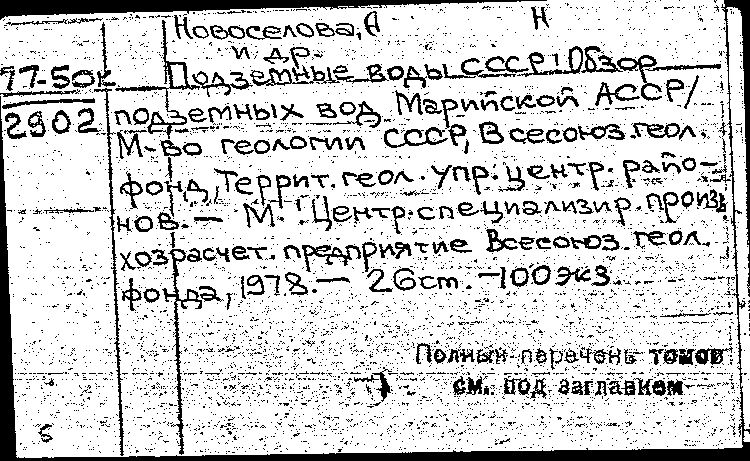 Новоселова, А Н
и др.
77-50к Подземные воды СССР: Обзор
2902 подземных вод Марийской АССР/
М-во геологии СССР, Всесоюз. геол.
фонд, Террит. геол. упр. центр. райо-
нов. — М.: Центр. специализир. произв
хозрасчет. предприятие Всесоюз. геол.
фонда, 1978. — 26 ст. — 100 экз.
Полный перечень томов
см. под заглавием